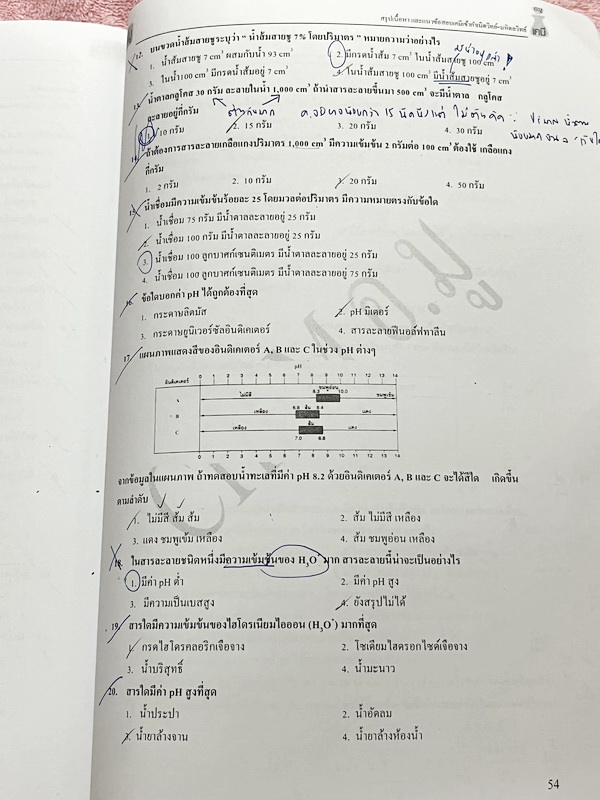 สรุปเนื้อหา และแนวข้อสอบเตรียมเข้ากำเนิดวิทย์-มหิดลวิทย์
เคมี
12. บนขวดน้ำส้มสายชูระบุว่า “ น้ำส้มสายชู 7% โดยปริมาตร ” หมายความว่าอย่างไร
1. น้ำส้มสายชู 7 cm³ ผสมกับน้ำ 93 cm³
2. มีกรดน้ำส้ม 7 cm³ ในน้ำส้มสายชู 100 cm³
3. ในน้ำ100 cm³ มีกรดน้ำส้มอยู่ 7 cm³
4. ในน้ำส้มสายชู 100 cm³ มีน้ำส้มสายชูอยู่ 7 cm³
13. น้ำตาลกลูโคส 30 กรัม ละลายในน้ำ 1,000 cm³ ถ้านำสารละลายขึ้นมา 500 cm³ จะมีน้ำตาล กลูโคส
ละลายอยู่กี่กรัม
1. 10 กรัม
2. 15 กรัม
3. 20 กรัม
4. 30 กรัม
14. ถ้าต้องการสารละลายเกลือแกงปริมาตร 1,000 cm³ มีความเข้มข้น 2 กรัมต่อ 100 cm³ ต้องใช้ เกลือแกง
กี่กรัม
1. 2 กรัม
2. 10 กรัม
3. 20 กรัม
4. 50 กรัม
15. น้ำเชื่อมมีความเข้มข้นร้อยละ 25 โดยมวลต่อปริมาตร มีความหมายตรงกับข้อใด
1. น้ำเชื่อม 75 กรัม มีน้ำตาลละลายอยู่ 25 กรัม
2. น้ำเชื่อม 100 กรัม มีน้ำตาลละลายอยู่ 25 กรัม
3. น้ำเชื่อม 100 ลูกบาศก์เซนติเมตร มีน้ำตาลละลายอยู่ 25 กรัม
4. น้ำเชื่อม 100 ลูกบาศก์เซนติเมตร มีน้ำตาลละลายอยู่ 75 กรัม
16. ข้อใดบอกค่า pH ได้ถูกต้องที่สุด
1. กระดาษลิตมัส
2. pH มิเตอร์
3. กระดาษยูนิเวอร์ซัลอินดิเคเตอร์
4. สารละลายฟีนอล์ฟทาลีน
17. แผนภาพแสดงสีของอินดิเคเตอร์ A, B และ C ในช่วง pH ต่างๆ
pH
อินดิเคเตอร์ 0 1 2 3 4 5 6 7 8 9 10 11 12 13 14
A ไม่มีสี 8.3 ชมพูอ่อน 10.0 ชมพูเข้ม
B เหลือง 6.8 ส้ม 8.4 แดง
C เหลือง 7.0 ส้ม 8.8 แดง
0 1 2 3 4 5 6 7 8 9 10 11 12 13 14
จากข้อมูลในแผนภาพ ถ้าทดสอบน้ำทะเลที่มีค่า pH 8.2 ด้วยอินดิเคเตอร์ A, B และ C จะได้สีใด เกิดขึ้น
ตามลำดับ
1. ไม่มีสี ส้ม ส้ม
2. ส้ม ไม่มีสี เหลือง
3. แดง ชมพูเข้ม เหลือง
4. ส้ม ชมพูอ่อน เหลือง
18. ในสารละลายชนิดหนึ่งมีความเข้มข้นของ H₃O⁺ มาก สารละลายนี้น่าจะเป็นอย่างไร
1. มีค่า pH ต่ำ
2. มีค่า pH สูง
3. มีความเป็นเบสสูง
4. ยังสรุปไม่ได้
19. สารใดมีความเข้มข้นของไฮโดรเนียมไอออน (H₃O⁺) มากที่สุด
1. กรดไฮโดรคลอริกเจือจาง
2. โซเดียมไฮดรอกไซด์เจือจาง
3. น้ำบริสุทธิ์
4. น้ำมะนาว
20. สารใดมีค่า pH สูงที่สุด
1. น้ำประปา
2. น้ำอัดลม
3. น้ำยาล้างจาน
4. น้ำยาล้างห้องน้ำ
54